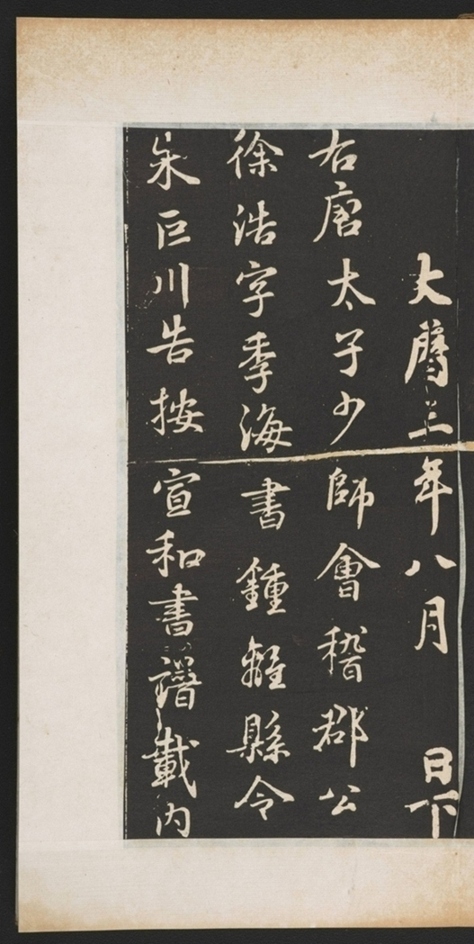 大曆三年八月 日下
右唐太子少師會稽郡公
徐浩字季海書鍾離縣令
朱巨川告按宣和書譜載内